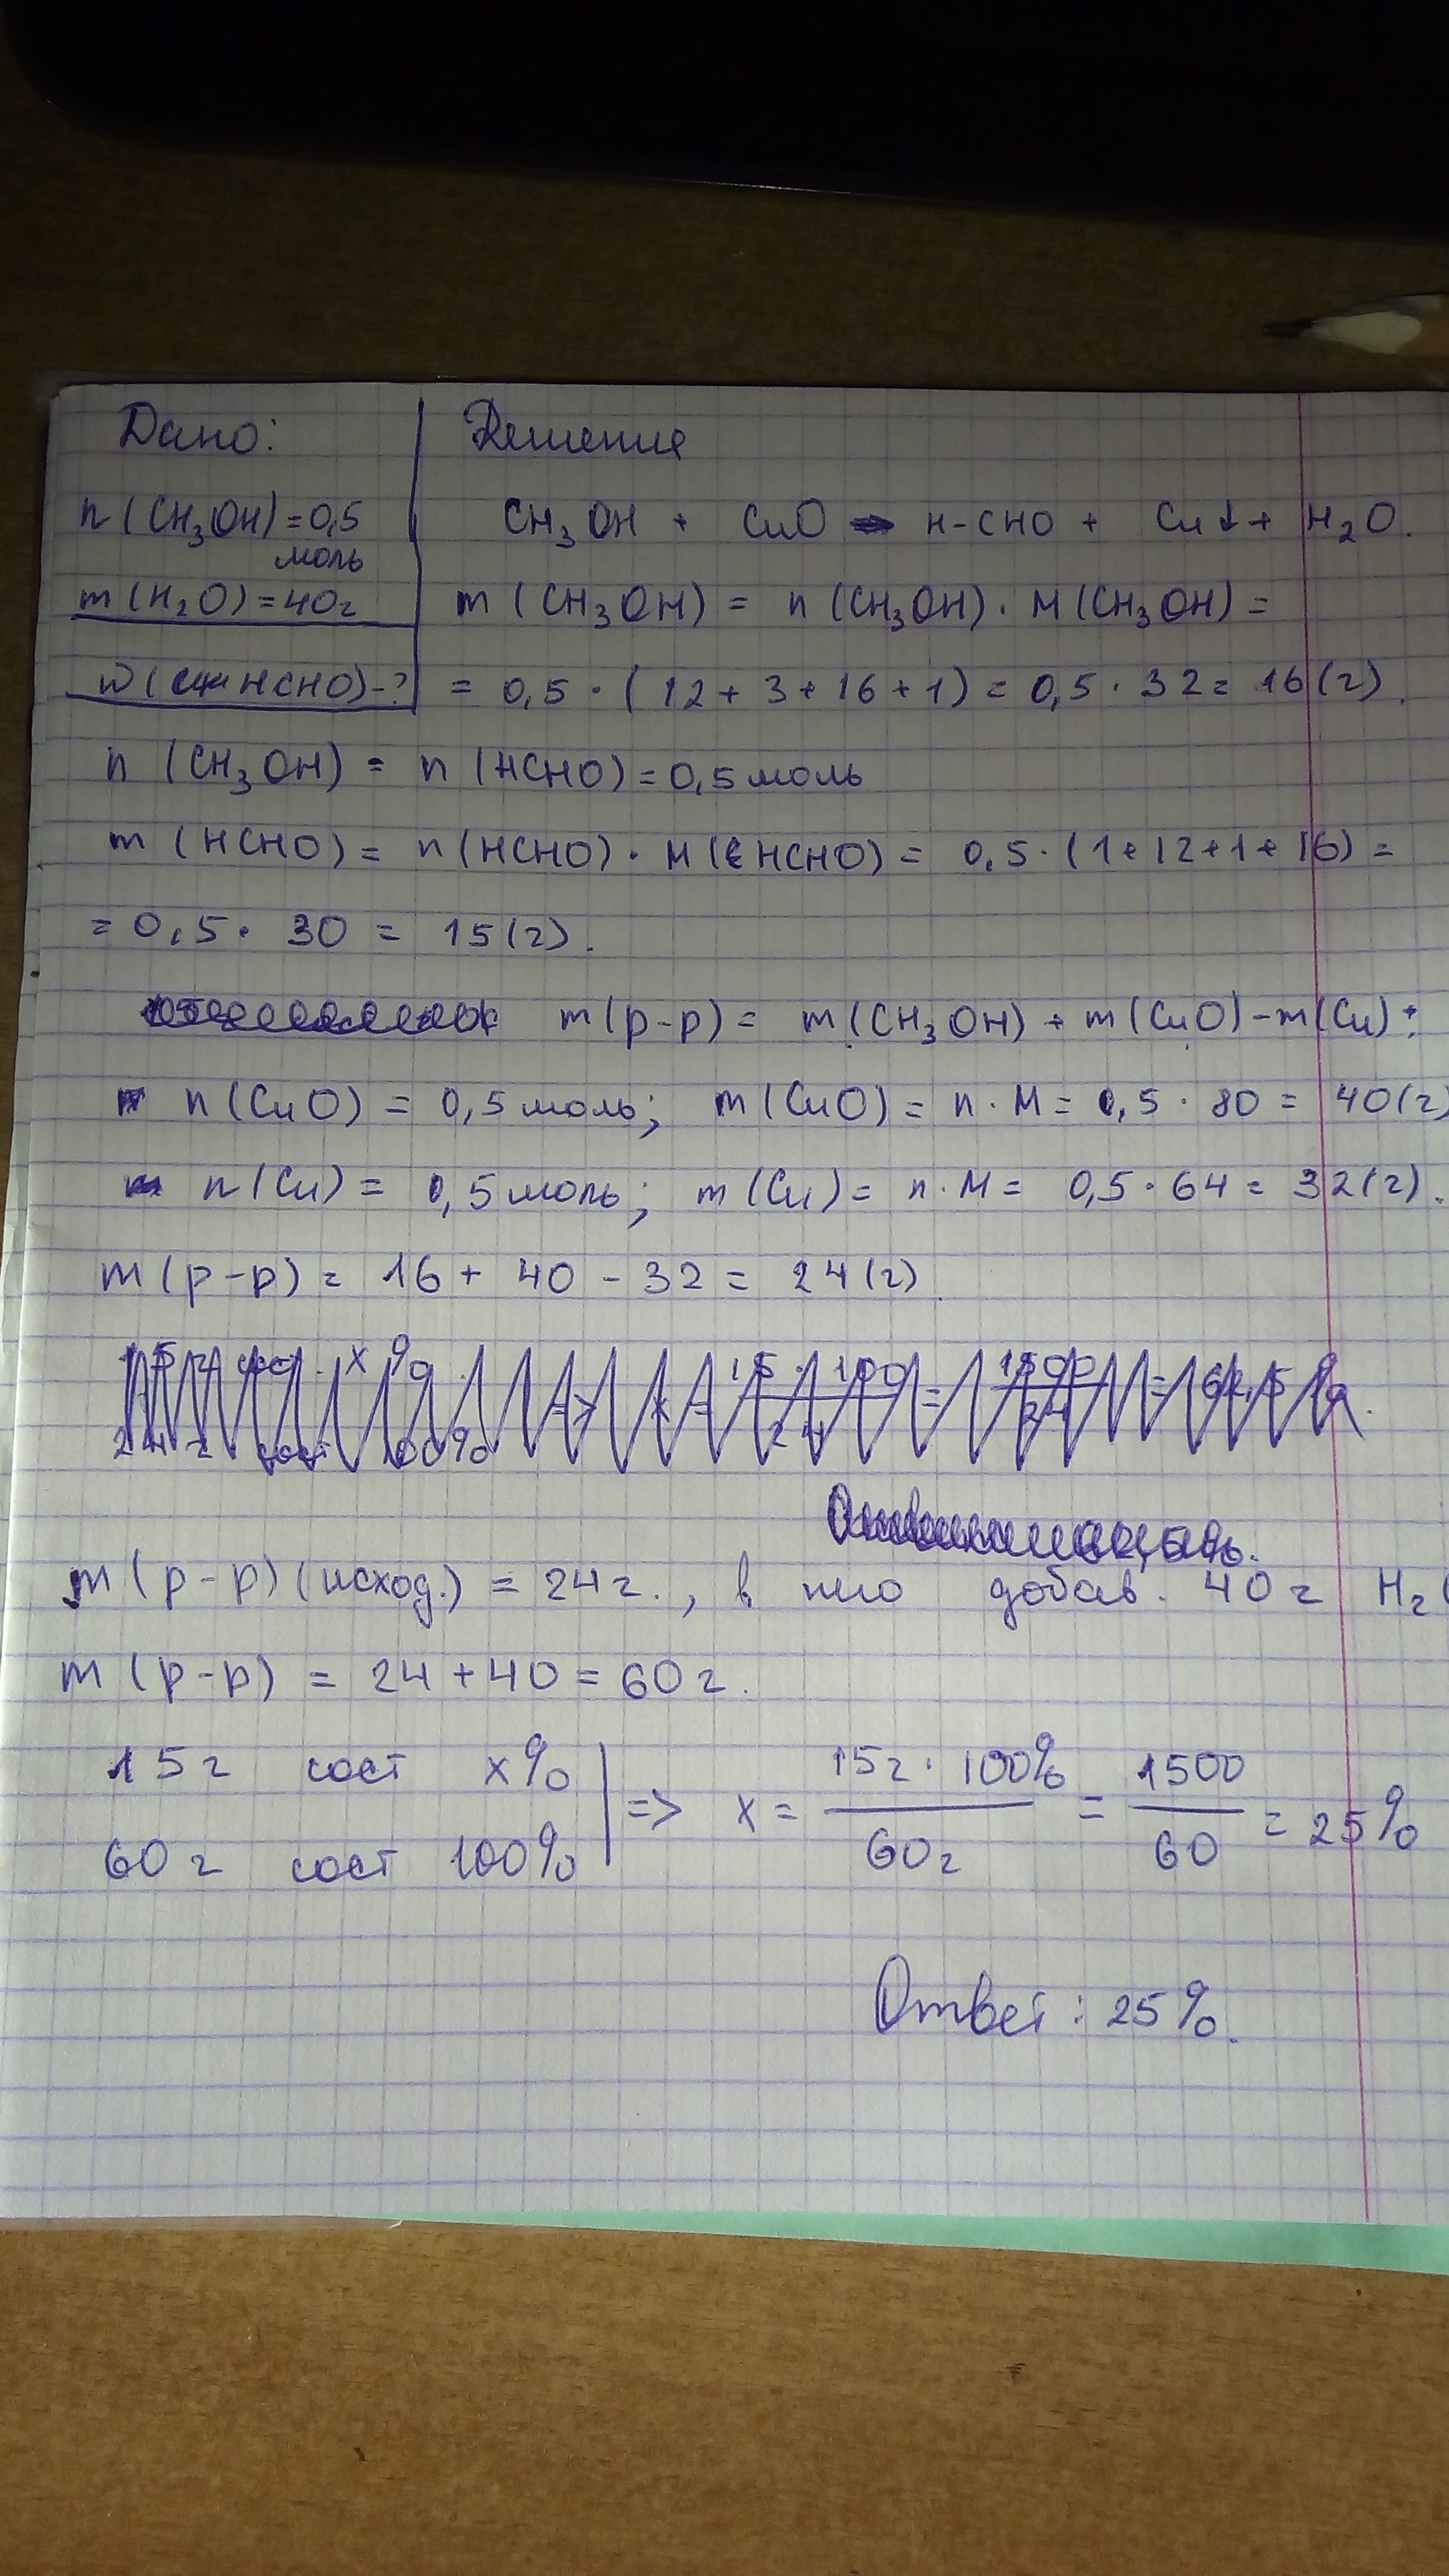 Дано:
Решение
n (CH₃OH) = 0,5
моль
m (H₂O) = 40г
w (HCHO) - ?
CH₃OH + CuO → H-CHO + Cu↓ + H₂O.
m (CH₃OH) = n (CH₃OH) · M (CH₃OH) =
= 0,5 · (12 + 3 + 16 + 1) = 0,5 · 32 = 16 (г).
n (CH₃OH) = n (HCHO) = 0,5 моль
m (HCHO) = n (HCHO) · M (HCHO) = 0,5 · (1 + 12 + 1 + 16) =
= 0,5 · 30 = 15 (г).
m (р-р) = m (CH₃OH) + m (CuO) - m (Cu) =
n (CuO) = 0,5 моль; m (CuO) = n · M = 0,5 · 80 = 40 (г)
n (Cu) = 0,5 моль; m (Cu) = n · M = 0,5 · 64 = 32 (г).
m (р-р) = 16 + 40 - 32 = 24 (г).
m (р-р) (исход.) = 24 г., в добав. 40 г H₂
m (р-р) = 24 + 40 = 60 г.
15 г сост x% => x = 15г · 100% / 60г = 1500 / 60 = 25%
60 г сост 100%
Ответ: 25%.